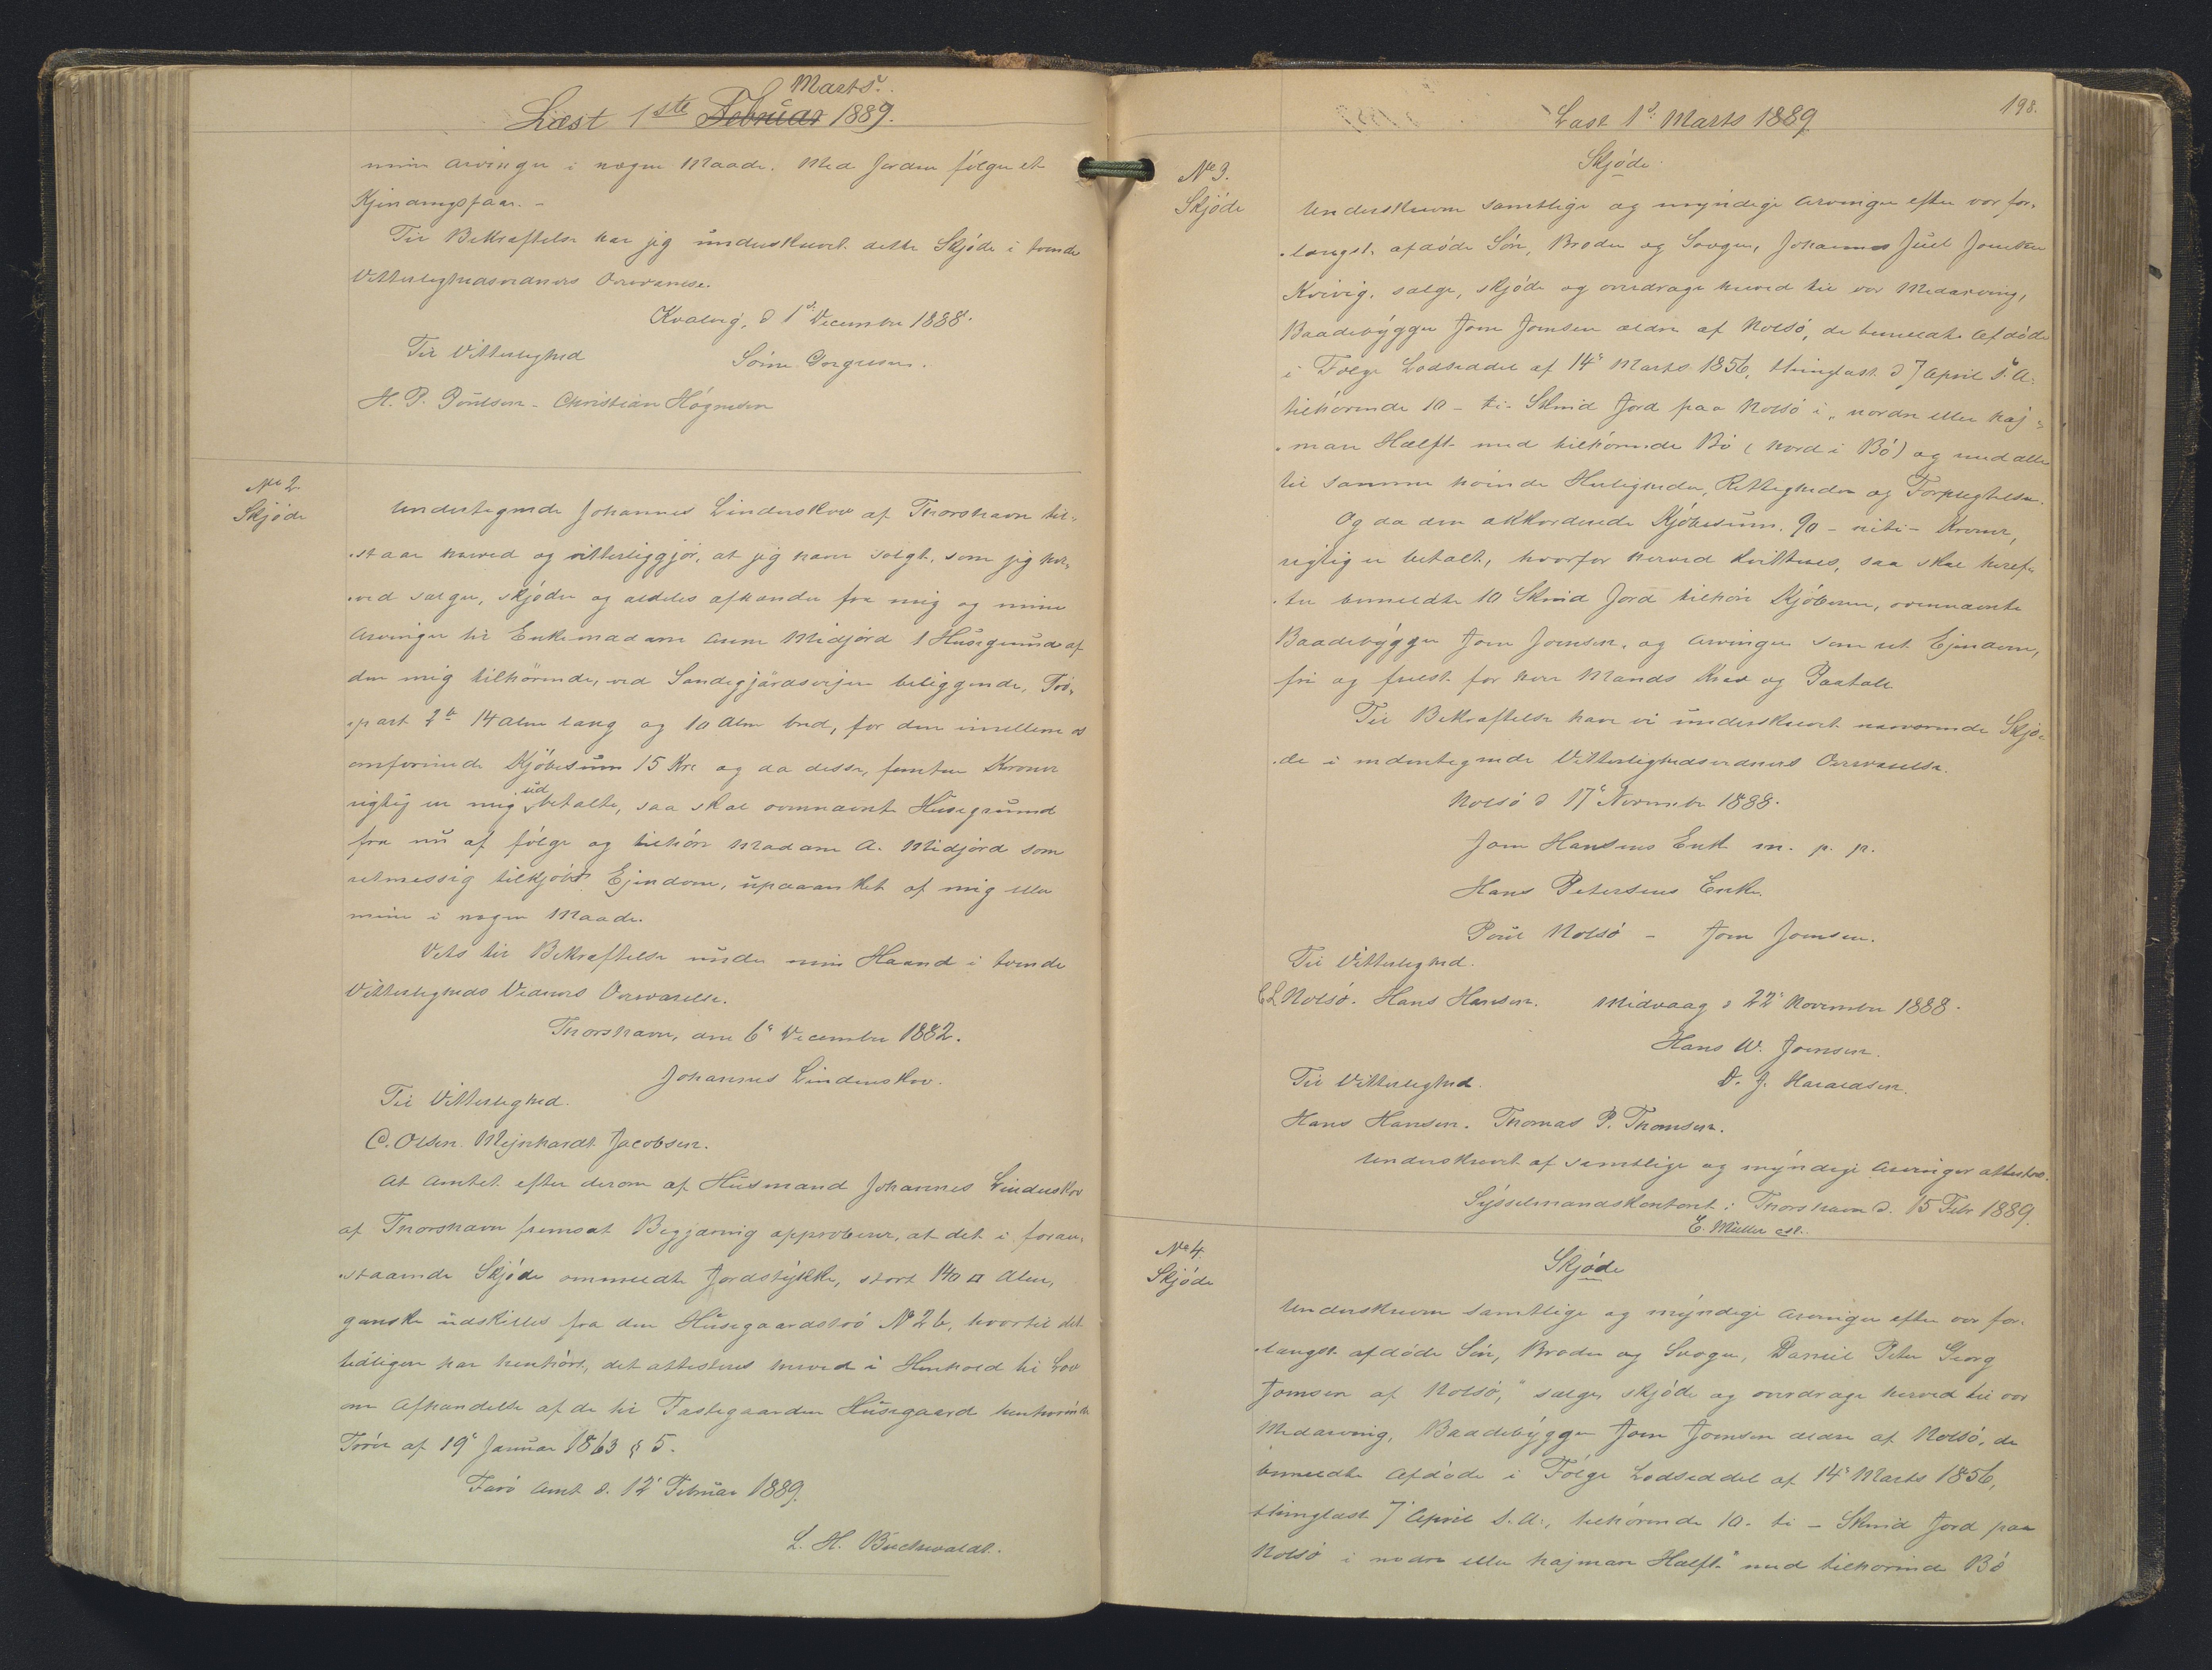 Marts.
Læst 1ste Februar 1889.
mine Arvinger i nogen Maade. Med Jorden følger et
Kjendingsfaar. -
Til Bekræftelse har jeg underskrevet dette Skjøde i tvende
Vitterlighedsvidners Overværelse.
Kvalvig, d 1ste December 1888.
Til Vitterlighed
Sönne Gregersen.
H. P. Poulsen - Christian Högnesen
No 2.
Skjøde
Undertegnede Johannes Lindenskov af Thorshavn til-
staar herved og vitterliggjør, at jeg haver solgt, som jeg her-
ved sælger, skjøder og aldeles afhænder fra mig og mine
Arvinger til Enkemadame Anne Midjord 1 Husegrund af
den mig tilhørende, ved Sandegjærdsvejen beliggende, Trö-
part 2b 14 Alen lang og 10 Alen bred, for den imellem os
omforenede Kjøbesum 15 Kr. og da disse, femten Kroner
rigtig er mig udbetalte, saa skal ovennævnte Husegrund
fra nu af følge og tilhøre Madame A. Midjord som
retmessig tilkjøbt Ejendom, upaaanket af mig eller
mine i nogen Maade.
Dets til Bekræftelse under min Haand i tvende
Vitterligheds Vidners Overværelse.
Thorshavn, den 6. December 1882.
Johannes Lindenskov.
Til Vitterlighed.
C. Olsen. Mejnhardt Jacobsen.
At Amtet efter derom af Husmand Johannes Lindenskov
af Thorshavn fremsat Begjæring approberer, at det i foran-
staaende Skjøde ommeldte Jordstykke, stort 140 □ Alen,
ganske udskilles fra den Husegaardströ No 2b, hvortil det
tidligere har henhørt, det attesteres herved i Henhold til Lov
om Afhændelse af de til Fæstegaarden Husegaard henhørende
Tröer af 19. Januar 1863 § 5.
Færø Amt d. 12. Februar 1889.
L. H. Buchwaldt.
198.
Læst 1ste Marts 1889
No 3.
Skjøde
Skjøde
Underskrevne samtlige og myndige Arvinger efter vor for-
længst afdøde Søn, Broder og Svoger, Johannes Juul Joensen
Kvivig, sælge, skjøde og overdrage herved til vor Medarving,
Baadebygger Joen Joensen ældre af Nolsø, de bemeldte Afdøde
i Følge Lodseddel af 14. Marts 1856, thinglæst d 7 April s. A.
tilhørende 10 - ti - Skind Jord paa Nolsø i "nordre eller haj-
mare Hælft" med tilhørende Bø (Nord i Bø) og med alle
til samme hørende Herligheder, Rettigheder og Forpligtelser.
Og da den akkorderede Kjøbesum, 90 - niti - Kroner,
rigtig er betalt, hvorfor herved kvitteres, saa skal heref-
ter bemeldte 10 Skind Jord tilhøre Kjøberen, ovennævnte
Baadebygger Joen Joensen, og Arvinger som ret Ejendom,
fri og frelst for hver Mands Krav og Paatale
Til Bekræftelse have vi underskrevet nærværende Skjø-
de i undertegnede Vitterlighedsvidners Overværelse.
Nolsø d 17. November 1888.
Joen Hansens Enke m. p. p.
Hans Petersens Enke.
Poul Nolsö - Joen Joensen.
Til Vitterlighed.
C L Nolsö. Hans Hansen. Midvaag d 22. November 1888.
Hans W. Joensen.
Til Vitterlighed.
D. J. Haraldsen.
Hans Hansen. Thomas P. Thomsen.
Underskrevet af samtlige og myndige Arvinger attesteres.
Sysselmandskontoret i Thorshavn d. 15 Febr 1889.
E. Müller cst.
No 4.
Skjøde
Skjøde
Underskrevne samtlige og myndige Arvinger efter vor for-
længst afdøde Søn, Broder og Svoger, Daniel Peter Georg
Joensen af Nolsø, sælge, skjøde og overdrage herved til vor
Medarving, Baadebygger Joen Joensen ældre af Nolsø, de
bemeldte Afdøde i Følge Lodseddel af 14. Marts 1856,
thinglæst 7 April s. A., tilhørende 10 - ti - Skind Jord paa
Nolsø i nordre eller hajmare Hælft" med tilhørende Bø